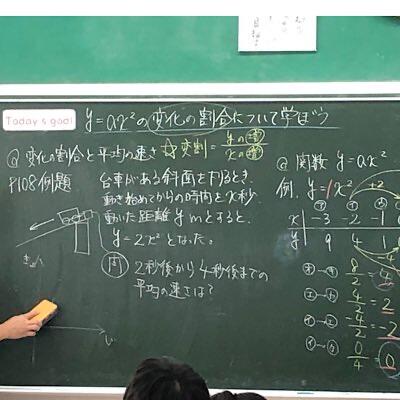 Today's goal
y=ax²の変化の割合について学ぼう
Q 変化の割合と平均の速さ
☆変割=yの増/xの増
P108例題
台車がある斜面を下るとき、
動き始めてからの時間をx秒、
動いた距離ymとすると、
y=2x²となった。
問 2秒後から4秒後までの
平均の速さは?
Q 関数 y=ax²
例. y=1x²
+2
x -3 -2 -1
y 9 4 1
8/2=4
4/2=2
-4/2=-2
0/4=0